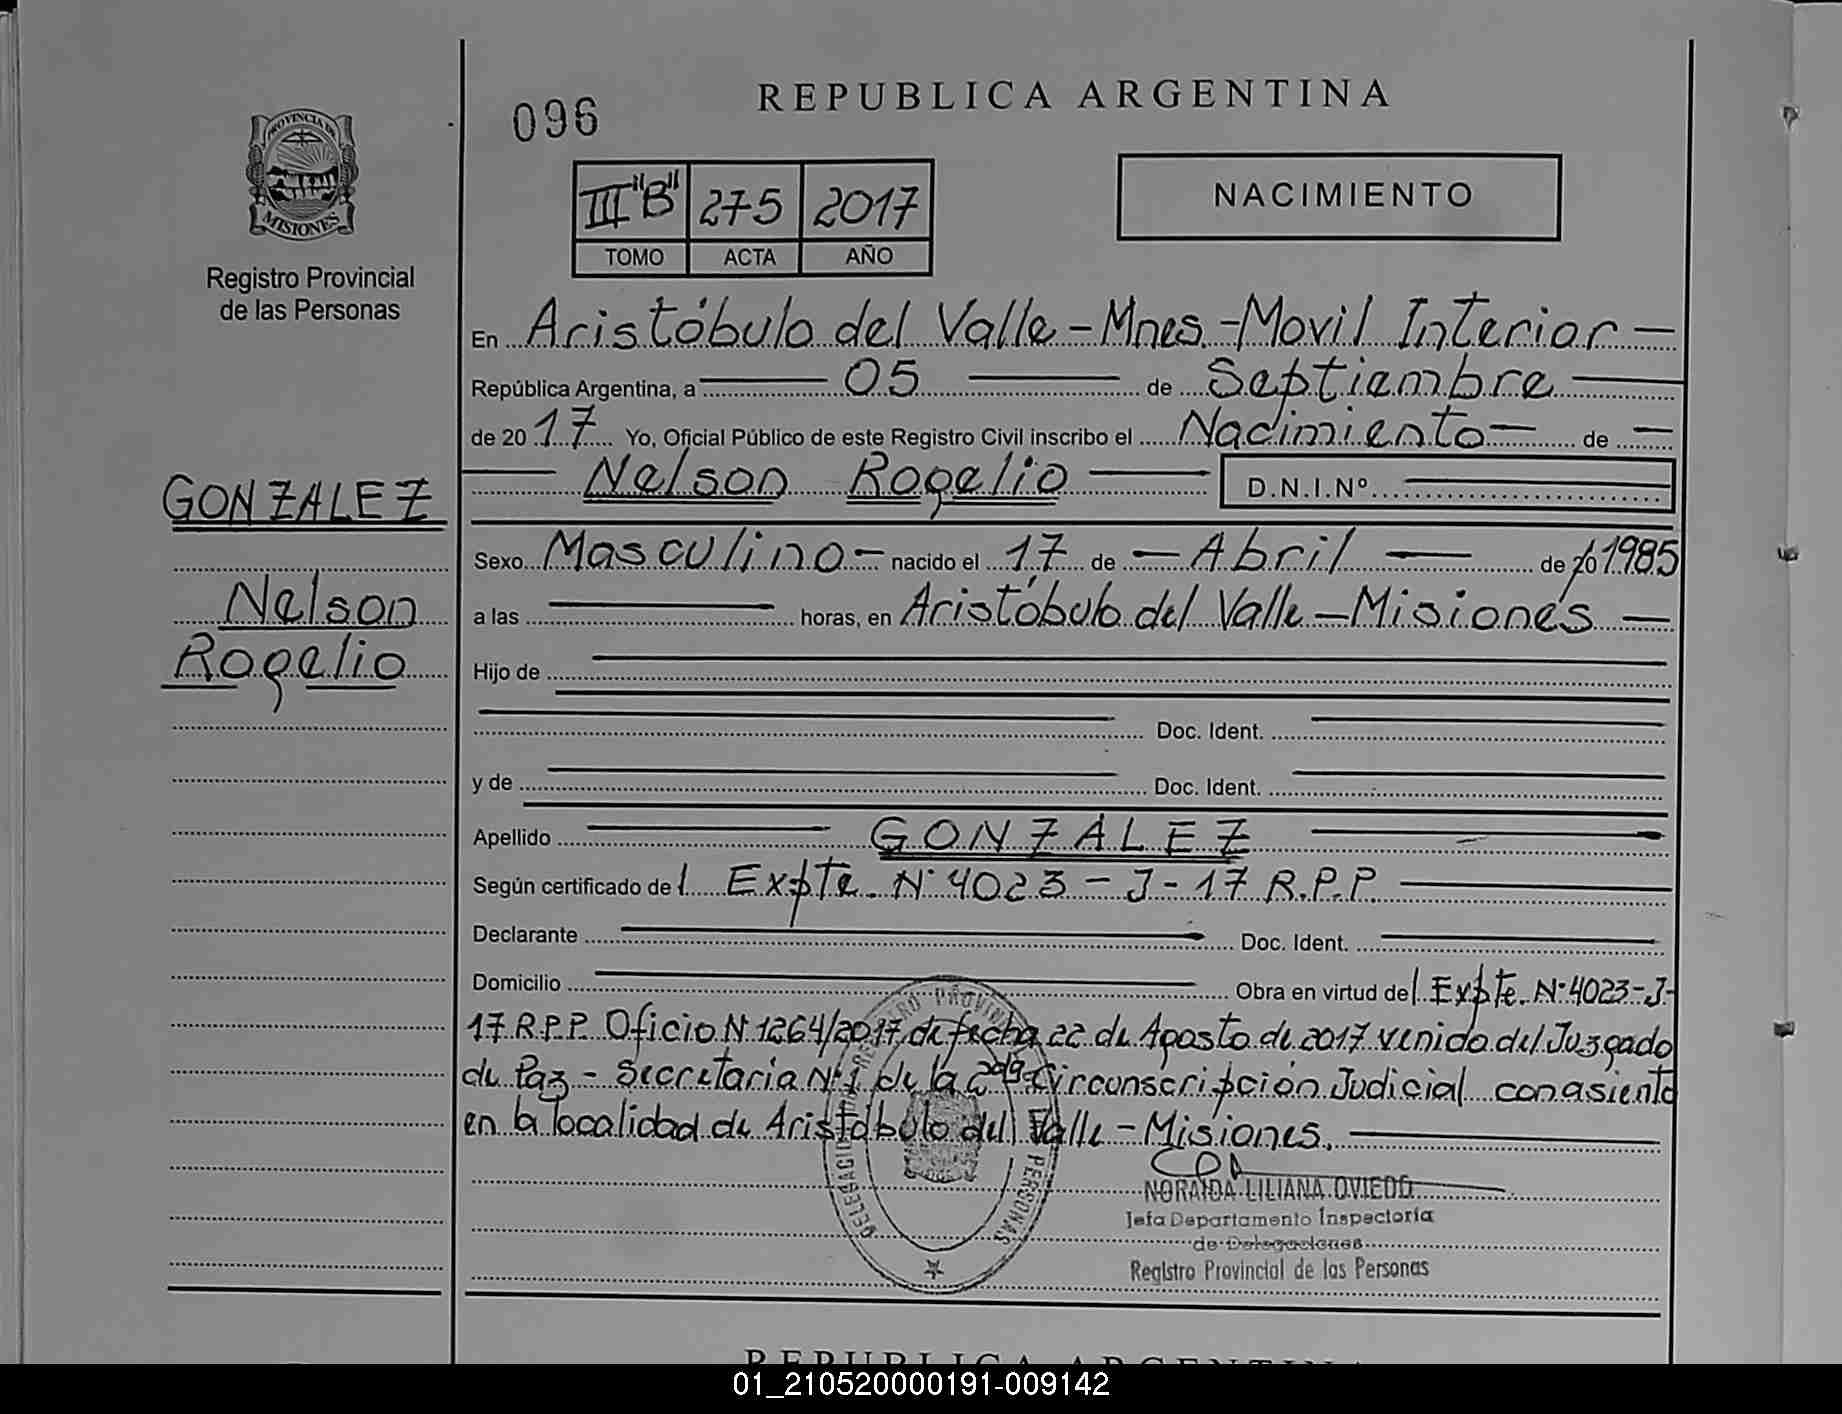 096
REPUBLICA ARGENTINA
PROVINCIA DE
MISIONES
III "B" 275 2017
TOMO ACTA AÑO
NACIMIENTO
Registro Provincial
de las Personas
En Aristóbulo del Valle - Mnes - Movil Interior
República Argentina, a 05 de Septiembre
de 20 17 Yo, Oficial Público de este Registro Civil inscribo el Nacimiento de
GONZALEZ
Nelson Rogelio D.N.I.Nº
Sexo Masculino nacido el 17 de Abril de 1985
Nelson
a las horas, en Aristóbulo del Valle - Misiones
Rogelio
Hijo de
Doc. Ident.
y de Doc. Ident.
Apellido GONZALEZ
Según certificado del Expte. Nº 4023 - J - 17 R.P.P.
Declarante Doc. Ident.
Domicilio Obra en virtud del Expte. Nº 4023 - J -
17 R.P.P. Oficio N 1264/2017 de fecha 22 de Agosto de 2017 venido del Juzgado
de Paz - Secretaria Nº 1 de la 2da Circunscripción Judicial con asiento
en la localidad de Aristóbulo del Valle - Misiones.
NORAIDA LILIANA OVIEDO
Jefa Departamento Inspectoría
de Delegaciones
Registro Provincial de las Personas
REPUBLICA ARGENTINA
01_210520000191-009142